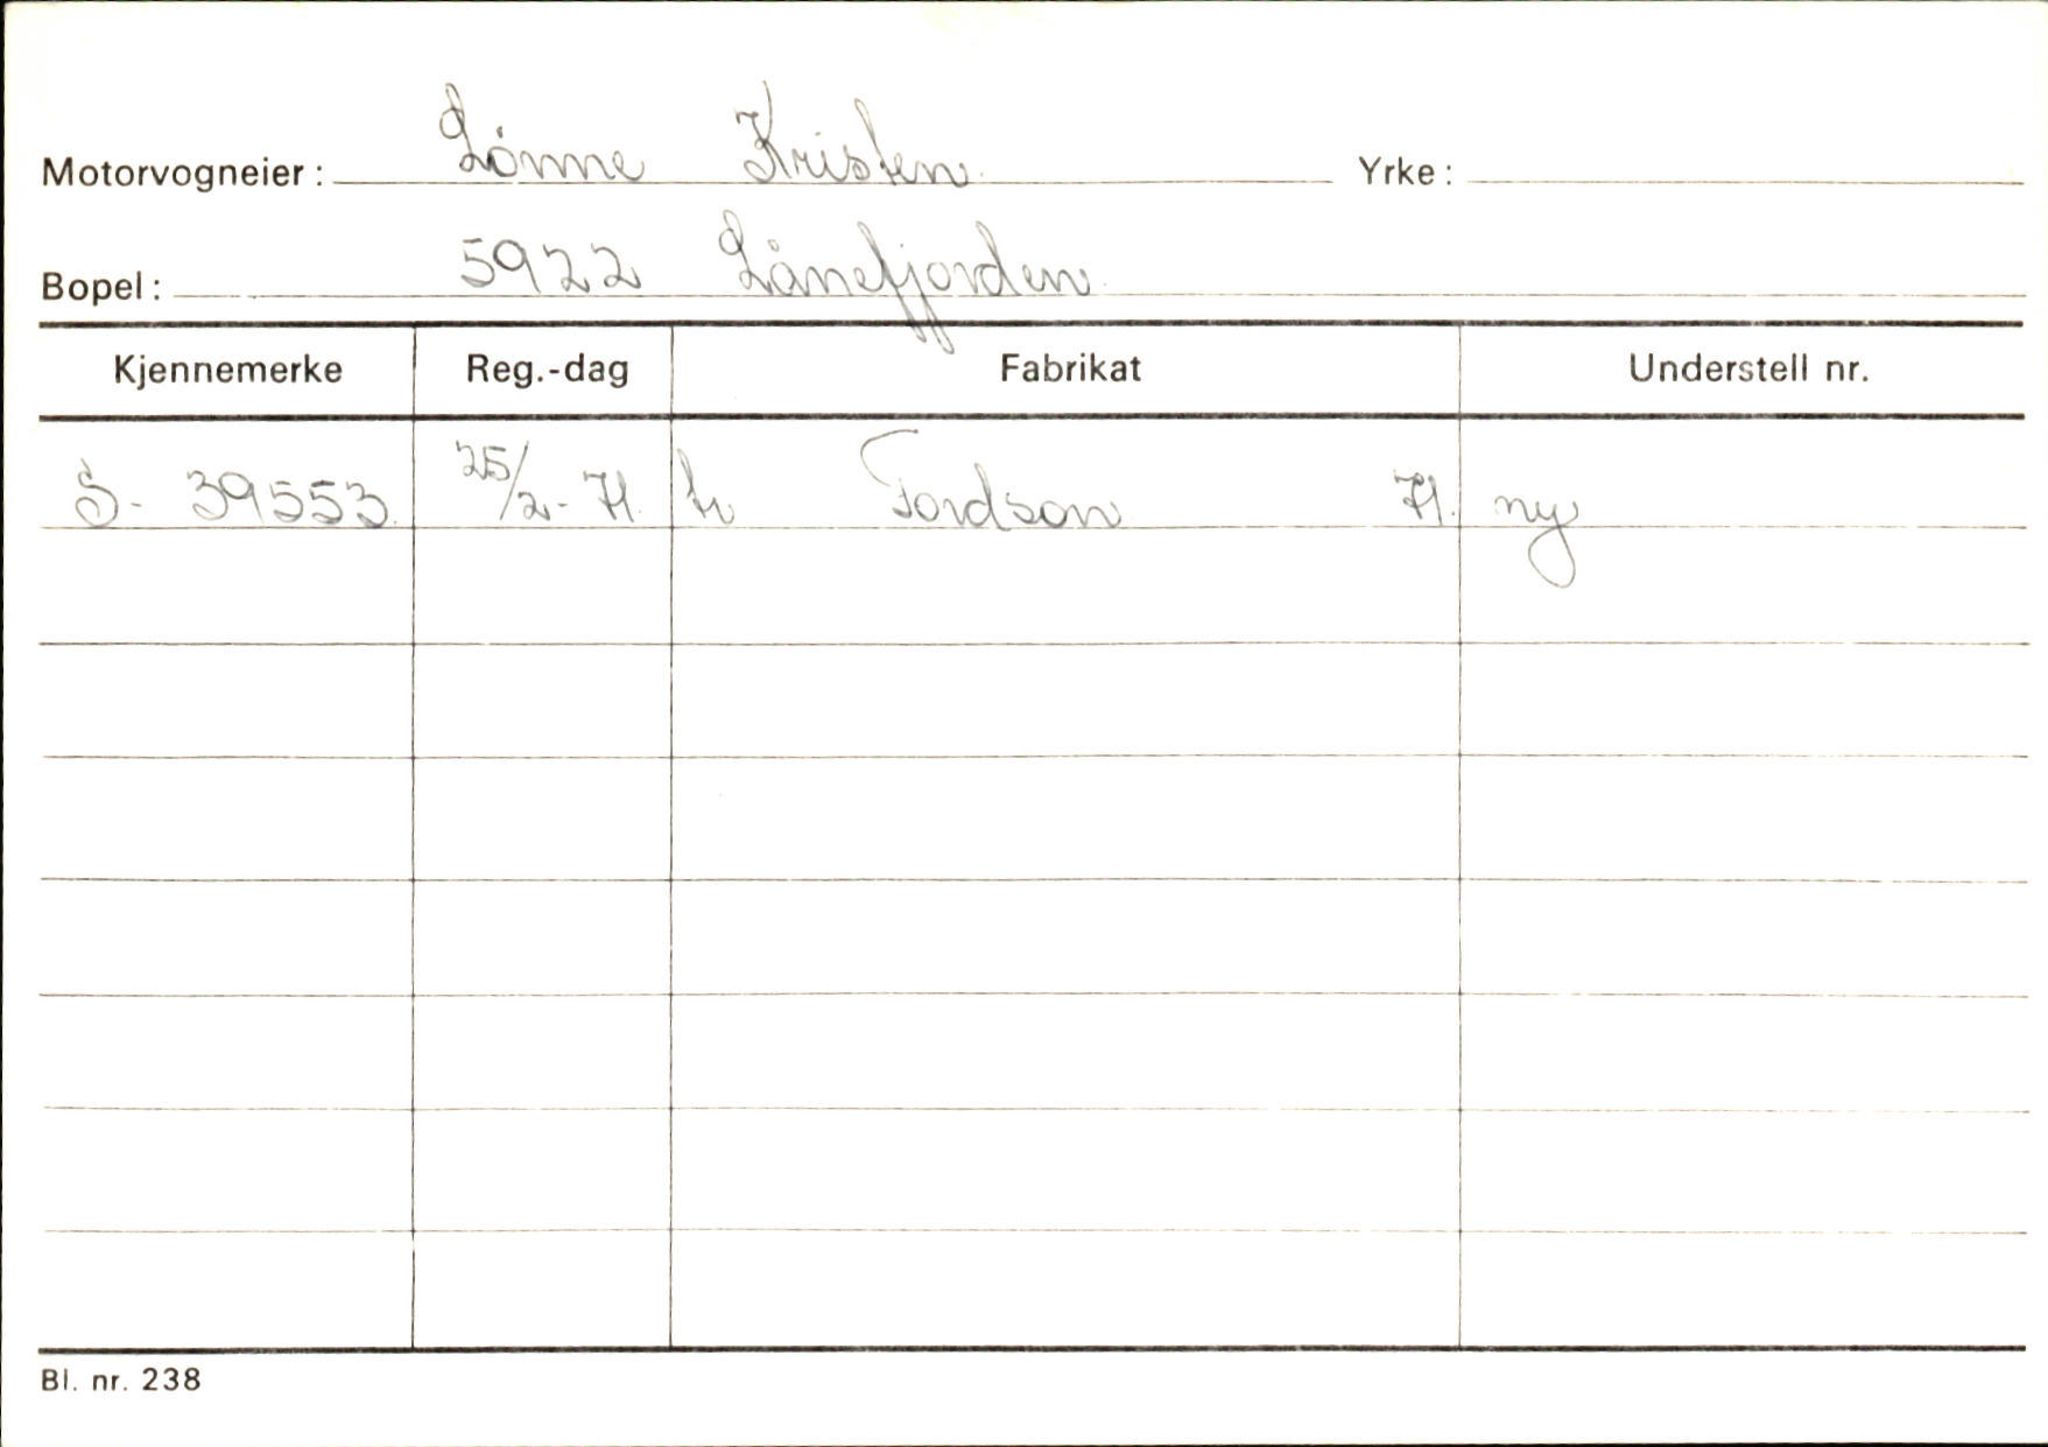 Motorvogneier: Lønne Kristen Yrke:
Bopel: 5922 Lånefjorden
Kjennemerke Reg.-dag Fabrikat Understell nr.
S- 39553 25/2-71. tr Fordson 71. ny
Bl. nr. 238